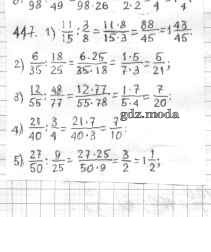 98 49 98·26 2·2 4 4
447. 1) 11/15 : 3/8 = 11·8/15·3 = 88/45 = 1 43/45.
2) 6/35 : 18/25 = 6·25/35·18 = 1·5/7·3 = 5/21;
3) 12/55 : 48/77 = 12·77/55·78 = 1·7/5·4 = 7/20;
gdz.moda
4) 21/40 : 3/4 = 21·7/40·3 = 7/10.
5) 27/50 : 9/25 = 27·25/50·9 = 3/2 = 1 1/2;